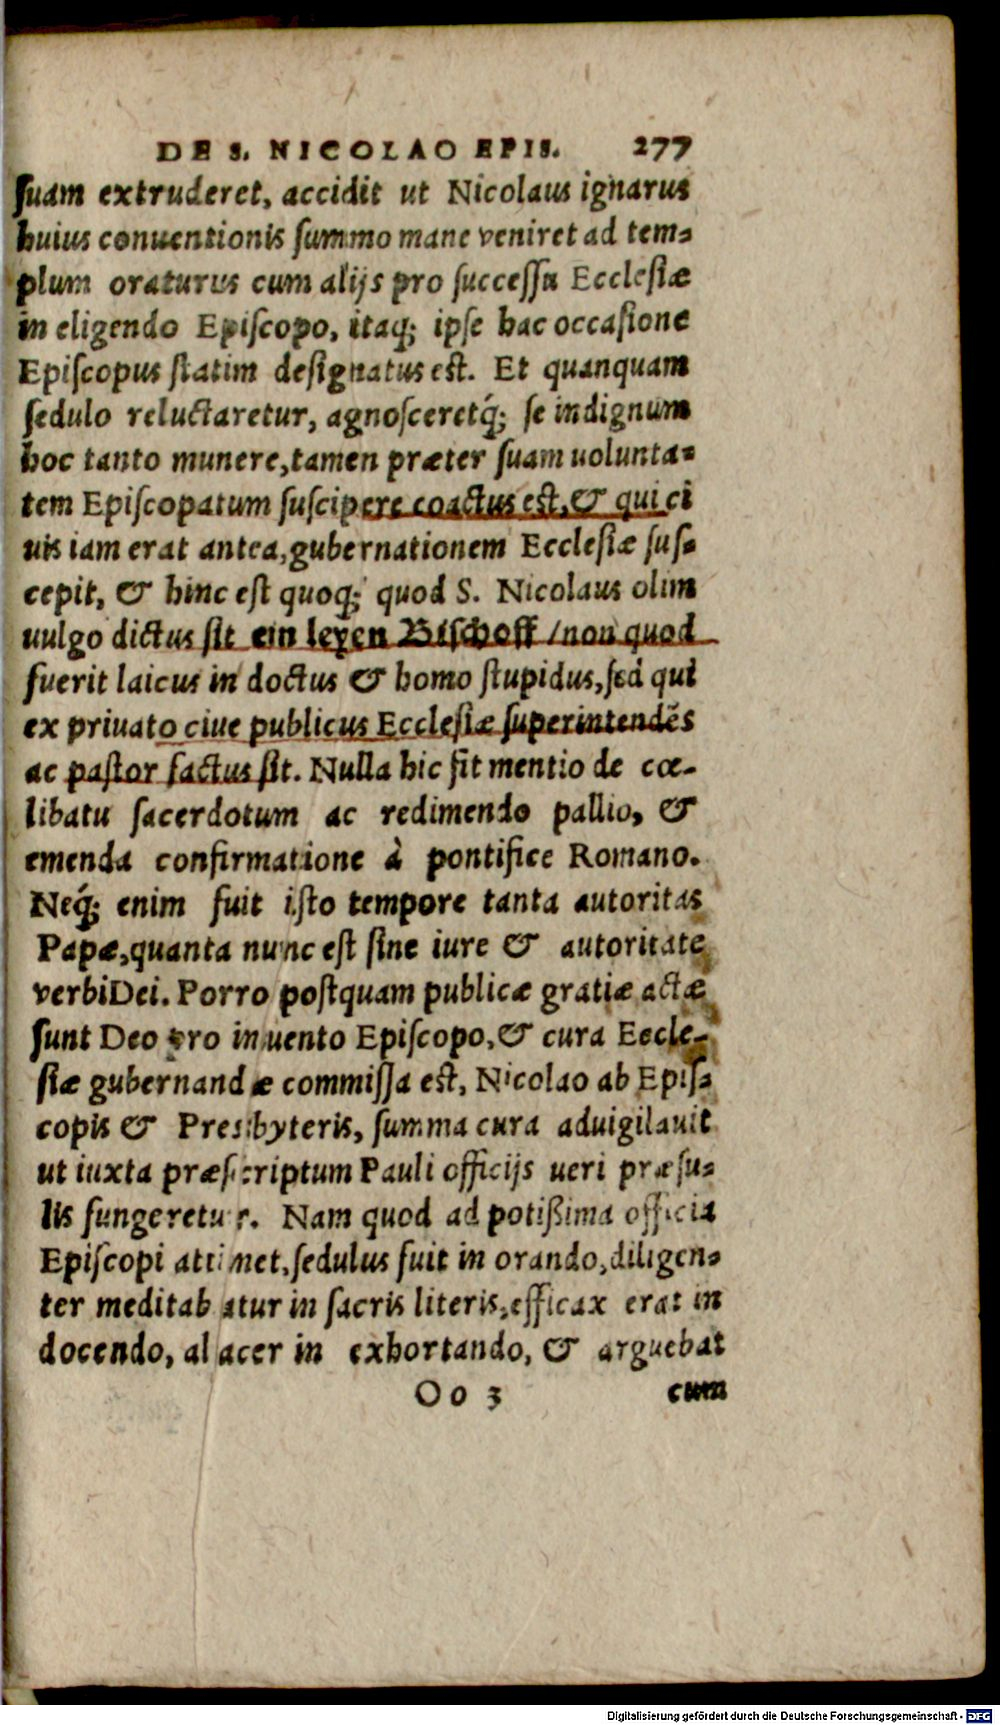 DE S. NICOLAO EPIS. 277
suam extruderet, accidit ut Nicolaus ignarus
huius conuentionis summo mane veniret ad tem-
plum oraturus cum alijs pro successu Ecclesiæ
in eligendo Episcopo, itaq; ipse hac occasione
Episcopus statim designatus est. Et quanquam
sedulo reluctaretur, agnosceretq́; se indignum
hoc tanto munere, tamen præter suam uolunta-
tem Episcopatum suscipere coactus est, & qui ci
uis iam erat antea, gubernationem Ecclesiæ sus-
cepit, & hinc est quoq; quod S. Nicolaus olim
uulgo dictus sit ein leyen Bischoff / non quod
fuerit laicus in doctus & homo stupidus, sed qui
ex priuato ciue publicus Ecclesiæ superintendēs
ac pastor factus sit. Nulla hic fit mentio de cœ-
libatu sacerdotum ac redimendo pallio, &
emenda confirmatione à pontifice Romano.
Neq́; enim fuit isto tempore tanta autoritas
Papæ, quanta nunc est sine iure & autoritate
verbi Dei. Porro postquam publicæ gratiæ actæ
sunt Deo pro inuento Episcopo, & cura Eccle-
siæ gubernandæ commissa est, Nicolao ab Epis-
copis & Presbyteris, summa cura aduigilauit
ut iuxta præscriptum Pauli officijs ueri præsu-
lis fungeretur. Nam quod ad potißima officia
Episcopi attinet, sedulus fuit in orando, diligen-
ter meditabatur in sacris literis, efficax erat in
docendo, alacer in exhortando, & arguebat
Oo 3 cum
Digitalisierung gefördert durch die Deutsche Forschungsgemeinschaft - DFG